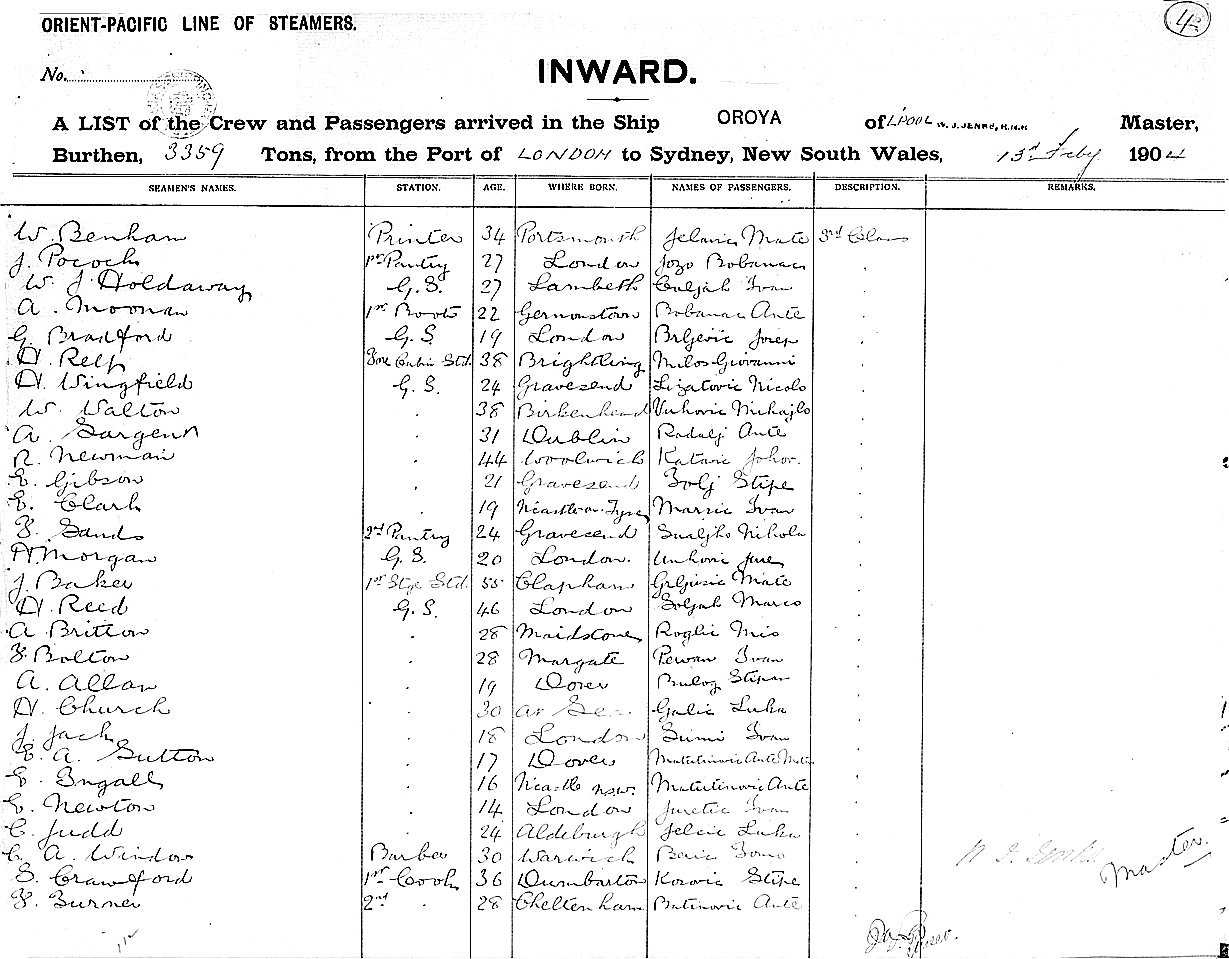 ORIENT-PACIFIC LINE OF STEAMERS.
No.
INWARD.
A LIST of the Crew and Passengers arrived in the Ship OROYA of L'POOL W. J. JENKS, R.N.R Master,
Burthen, 3359 Tons, from the Port of LONDON to Sydney, New South Wales, 13th July 1904
SEAMEN'S NAMES. STATION. AGE. WHERE BORN. NAMES OF PASSENGERS. DESCRIPTION. REMARKS.
W. Benham Printer 34 Portsmouth Jelavic Mate 3rd Class
J. Pocock 1st Pantry 27 London Jozo Bobanac
W. J. Holdaway G.S. 27 Lambeth Ivan
A. Moonan 1st Boots 22 Bobanac Ante
G. Bradford G.S. 19 London Josep
H. Relf Fore Cabin Std. 38 Brightling Milos Giovanni
H. Wingfield G.S. 24 Gravesend Lizatovic Nicolo
W. Walton . 38 Birkenhead Vukovic Mihajlo
A. Sargent . 31 Dublin Radalj Ante
R. Newman . 44 Woolwich Kataric
E. Gibson . 21 Gravesend Stipe
E. Clark . 19 Ncastle on Tyne Marsic Ivan
F. Sands 2nd Pantry 24 Gravesend Nikola
H. Morgan G.S. 20 London. Jure
J. Baker 1st Stge Std. 55 Clapham Mate
H. Reed G.S. 46 London Marco
A. Britton . 28 Maidstone Roglic Mio
F. Bolton . 28 Margate Pewan Ivan
A. Allan . 19 Dover Bulog Stipan
H. Church . 30 At Sea. Galic Luka
J. Jack . 18 London Ivan
E. A. Sutton . 17 Dover Matutinovic Ante Mate
E. Ingalls . 16 Ncastle NSW. Matutinovic Ante
E. Newton . 14 London Juretic Ivan
C. Judd . 24 Aldeburgh Jelcic Luka
C. A. Window Barber 30 Warwick
S. Crawford 1st Cook 36 Dumbarton Stipe
F. Burner 2nd . 28 Cheltenham Batinovic Ante
W. J. Jenks
Master.